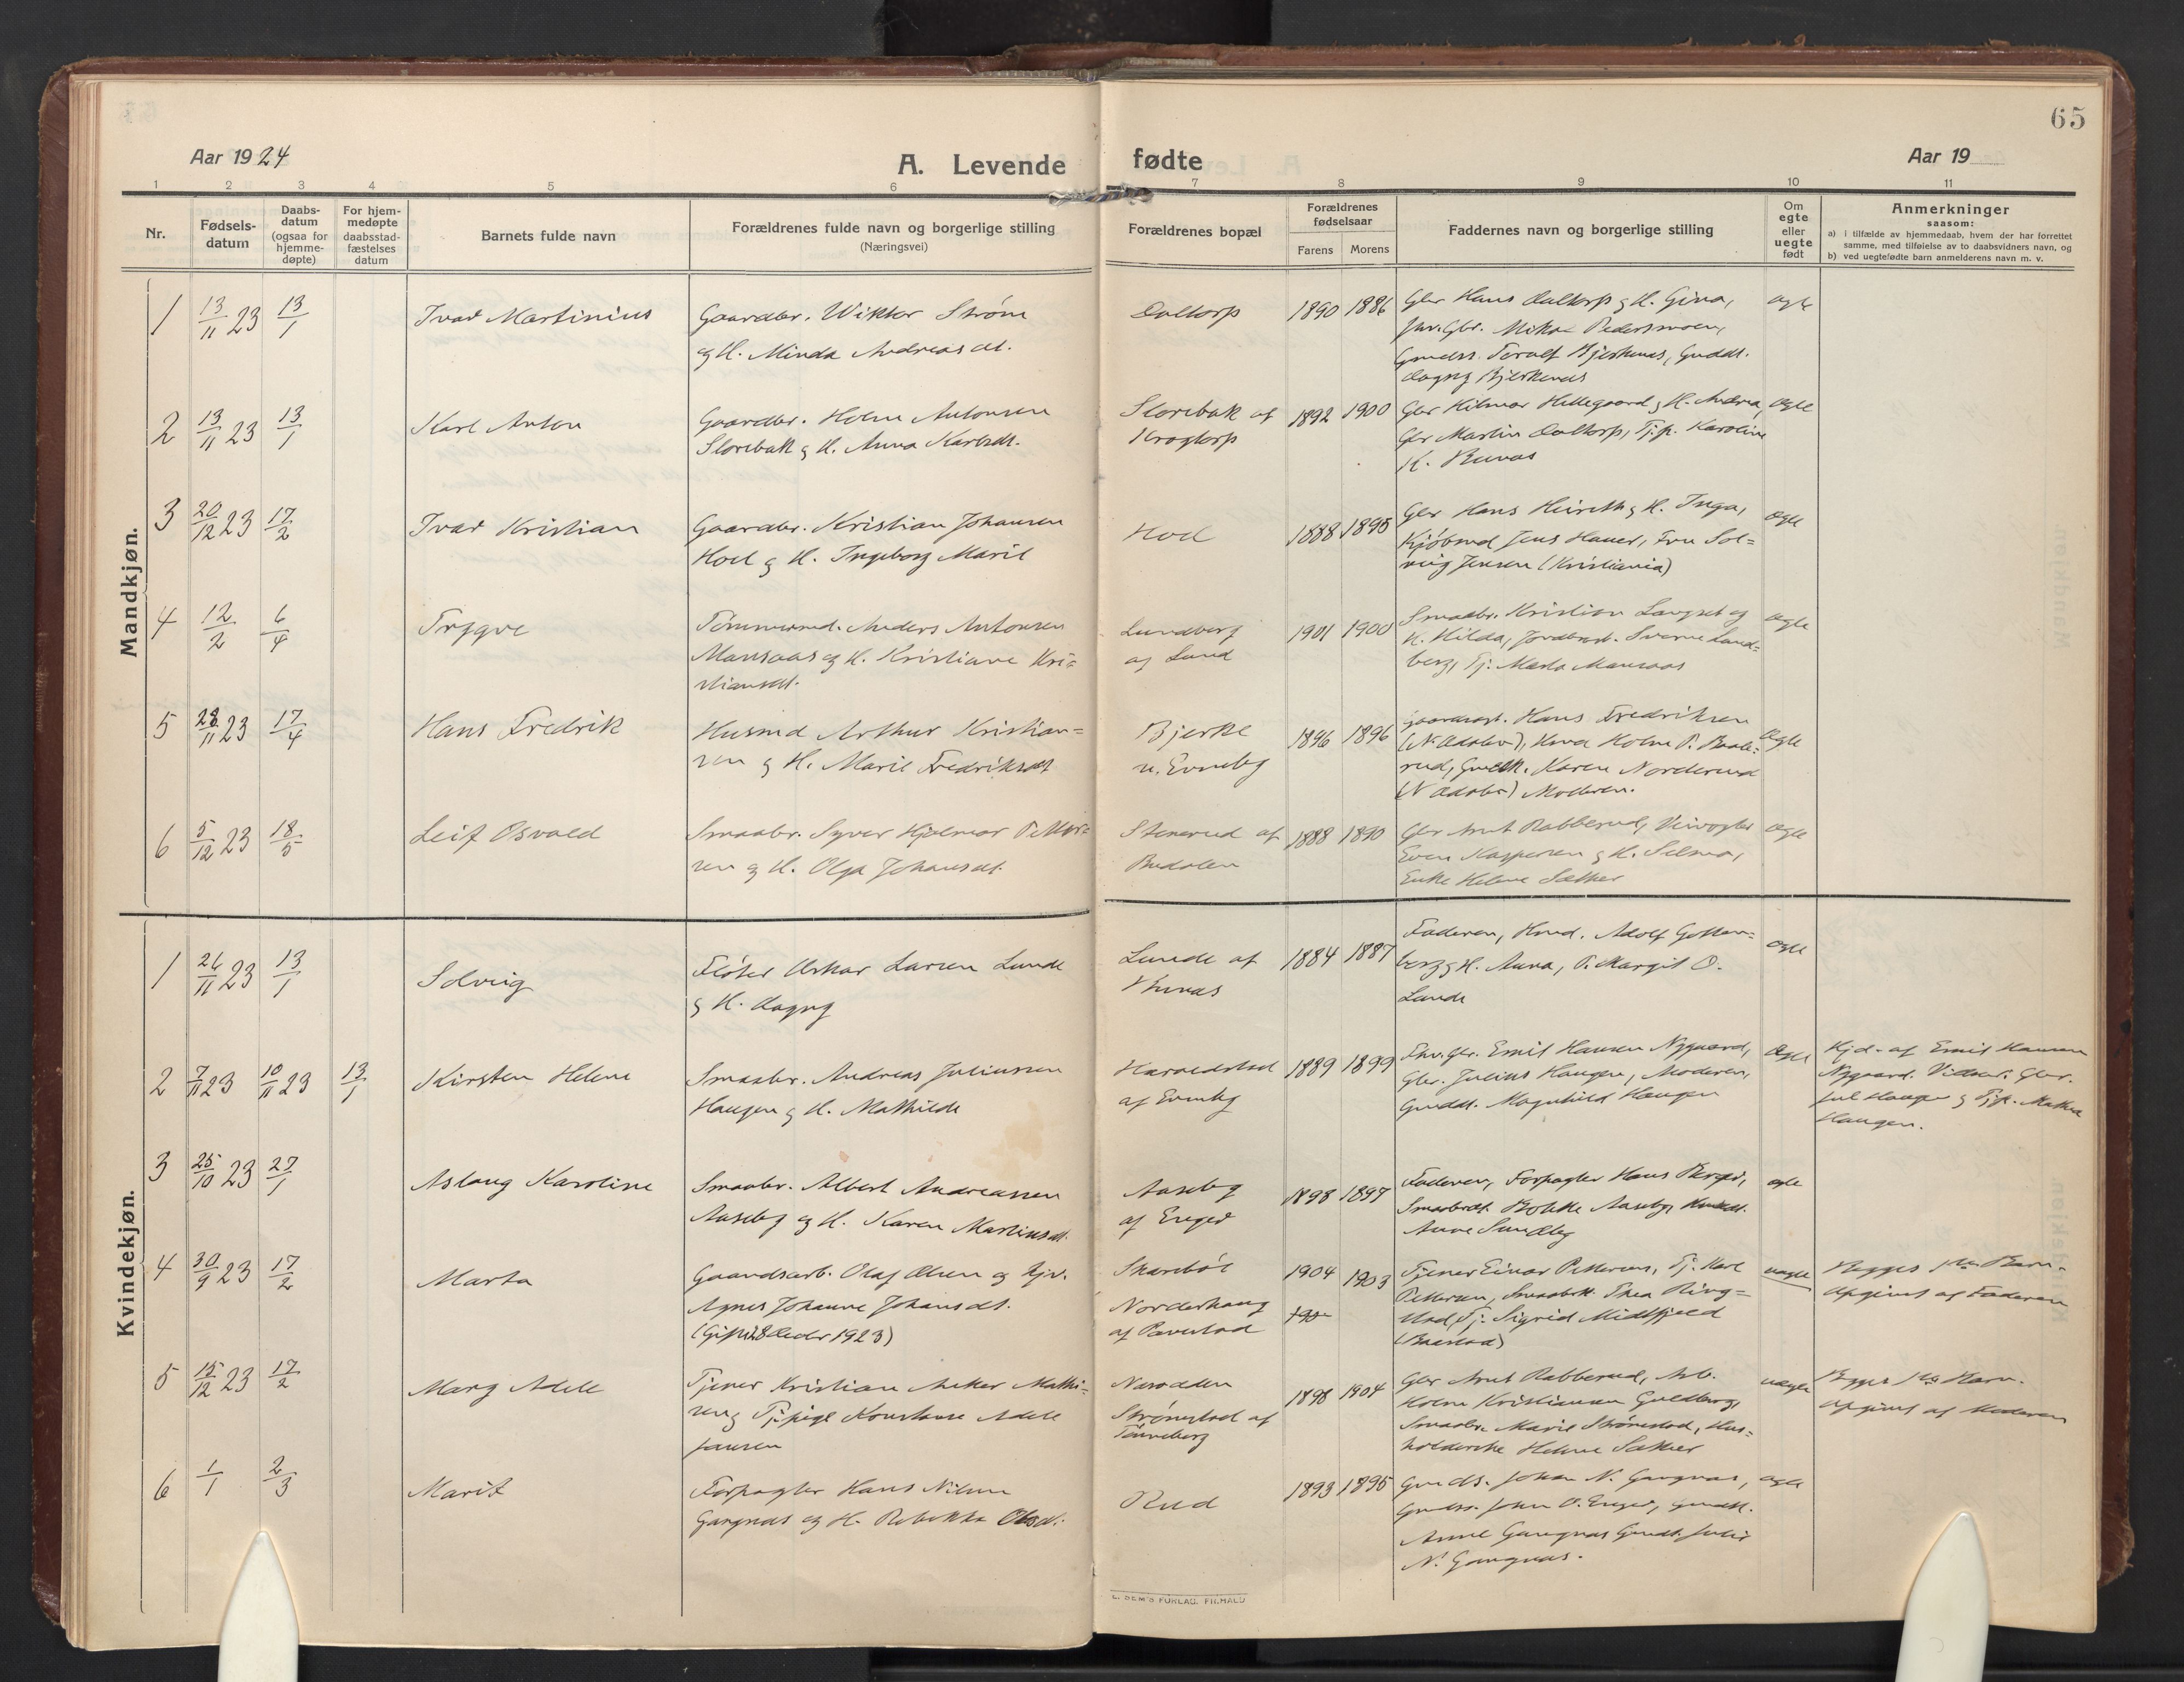 65
Aar 1924
A. Levende
fødte
Aar 19
1 2 3 4 5 6 7 8 9 10 11
Nr.
Fødsels-
datum
Daabs-
datum
(ogsaa for
hjemme-
døpte)
For hjem-
medøpte
daabsstad-
fæstelses
datum
Barnets fulde navn
Forældrenes fulde navn og borgerlige stilling
(Næringsvei)
Forældrenes bopæl
Forældrenes
fødselsaar
Farens Morens
Faddernes navn og borgerlige stilling
Om
egte
eller
uegte
født
Anmerkninger
saasom:
a) i tilfælde av hjemmedaab, hvem der har forrettet
samme, med tilføielse av to daabsvidners navn, og
b) ved uegtefødte barn anmelderens navn m. v.
Mandkjøn.
1 13/11 23 13/1
Ivar Martinius
Gaardbr. Wiktor Strøm
og H. Minda Andreasdt.
Daltorp
1890 1886
Gbr Hans Daltorp og H. Gina,
Pedersmoen,
Bjerkenes,
Dagny Bjerkenes
egte
2 13/11 23 13/1
Karl Anton
Gaardbr. Holm Antonsen
Storebak og H. Anna Karlsdt.
Storebak af
Krogtorp
1892 1900
Gbr Hilmar Hellegaard og H. Andrea,
Gbr Martin Daltorp, Tj.p. Karoline
K.
egte
3 20/12 23 17/2
Ivar Kristian
Gaardbr. Kristian Johansen
Hoel og H. Ingeborg Marie
Hoel
1888 1895
Gbr Hans og H. Inga,
Kjøbmd Jens Hauer, Fru Sol=
veig Jensen (Kristiania)
egte
4 12/2 6/4
Trygve
Tømmermd. Anders Antonsen
Mansaas og H. Kristiane Kri=
stiansdt.
Lundberg
af Lund
1901 1900
Smaabr. Kristian Langset og
H. Hilda, Sverre Lund=
berg, Tj. Marta Mansaas
egte
5 28/11 23 17/4
Hans Fredrik
Husmd Arthur Kristian=
sen og H. Marie Fredriksdt
Bjerke
u. Evenby
1896 1896
Hans Fredriksen
Holm P.
rud, Karen Norderud
Moderen.
egte
6 5/12 23 18/5
Leif Osvald
Smaabr. Syver Hjalmar Petter=
sen og H. Olga Johansdt.
Stenerud af
Budalen
1888 1890
Gbr Arnt Rabberud, Veivogter
Even Kaspersen og H. Selma,
Enke Helene Sæther
egte
Kvindekjøn.
1 26/11 23 13/1
Solveig
Fløter Oskar Larsen Lunde
og H. Dagny
Lunde af
1884 1887
Faderen, Hmd. Adolf Gotten=
berg og H. Anna, P. Margit O.
Lunde
egte
2 7/11 23 10/11 23 13/1
Kirsten Helene
Smaabr. Andreas Juliussen
Haugen og H. Mathilde
Haraldstad
af Evenby
1889 1899
Fhv. Gbr. Emil Hansen Nygaard,
Gbr. Julius Haugen, Moderen,
Gmdd. Magnhild Haugen
egte
Hjd. af Emil Hansen
Nygaard. Vidner: Gbr.
Jul Haugen og Tjp.
Haugen.
3 25/10 23 27/1
Aslaug Karoline
Smaabr. Albert Andreassen
Aaseby og H. Karen Martinsdt.
Aaseby
af Enger
1898 1897
Faderen, Forpagter Hans Berger,
Aaseby,
Anne Sundby
egte
4 30/9 23 17/2
Marta
Gaardsarb. Olaf Olsen og Hjv.
Agnes Johanne Johansdt.
1923)
Skarebøl
Norderhaug
af
1904 1903
Tjener Einar Pettersen, Tj. Karl
Pettersen, Smaabrk. Thea Ring=
stad, Tj. Sigrid Midtfjeld
uegte
Begges 1ste Barn.
Opgivet af Faderen
5 15/12 23 17/2
Mary Adele
Tjener Kristian Anker Mathi=
sen og Tj.pige Konstanse Adele
Jansen
Strønestad af
Tønneberg
1898 1904
Gbr Arnt Rabberud, Arb.
Holm Kristiansen Guldberg,
Smaabr. Marie Strønestad, Hus=
holderske Helene Sæther
uegte
Begges 1ste Barn.
Opgivet af Moderen
6 1/1 2/3
Marit
Forpagter Hans Nilsen
Gangnæs og H. Rebekka Olsdt.
Rud
1893 1895
Gmds. Johan N. Gangnæs,
Gmds. John O. Enger, Gmdd.
Anne Gangnæs Gmdd. Julie
N. Gangnæs.
egte
E. SEM'S FORLAG. FR.HALD